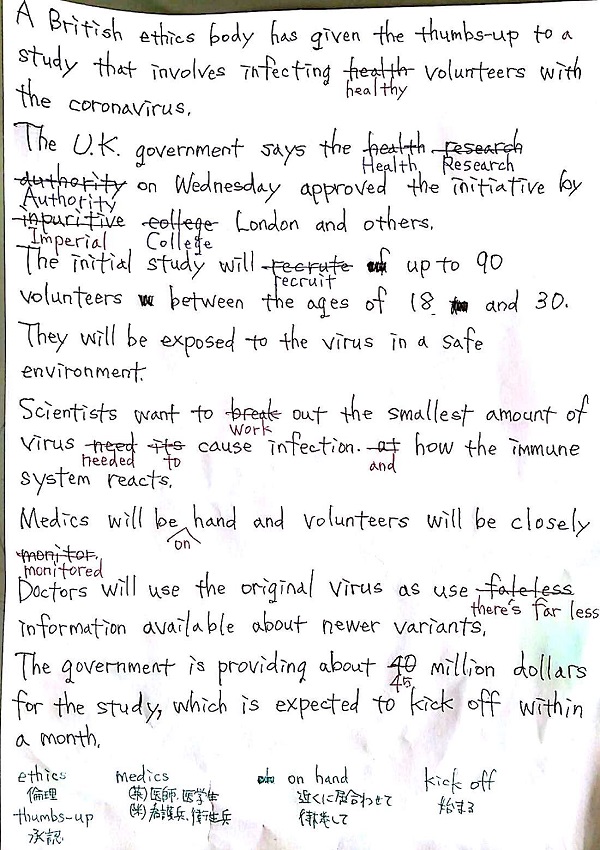 A British ethics body has given the thumbs-up to a
study that involves infecting health volunteers with
healthy
the coronavirus.
The U.K. government says the health research
Health Research
authority on Wednesday approved the initiative by
Authority
inpuritive college London and others.
Imperial College
The initial study will recrute up to 90
recruit
volunteers between the ages of 18 and 30.
They will be exposed to the virus in a safe
environment.
Scientists want to break out the smallest amount of
work
virus need its cause infection. at how the immune
needed to and
system reacts.
Medics will be hand and volunteers will be closely
on
monitor.
monitored
Doctors will use the original virus as use faleless
there's far less
information available about newer variants.
The government is providing about 40 million dollars
45
for the study, which is expected to kick off within
a month.
ethics medics on hand kick off
倫理 (英)医師、医学生 近くに居合わせて 始まる
thumbs-up (米)看護兵、衛生兵 待機して
承認